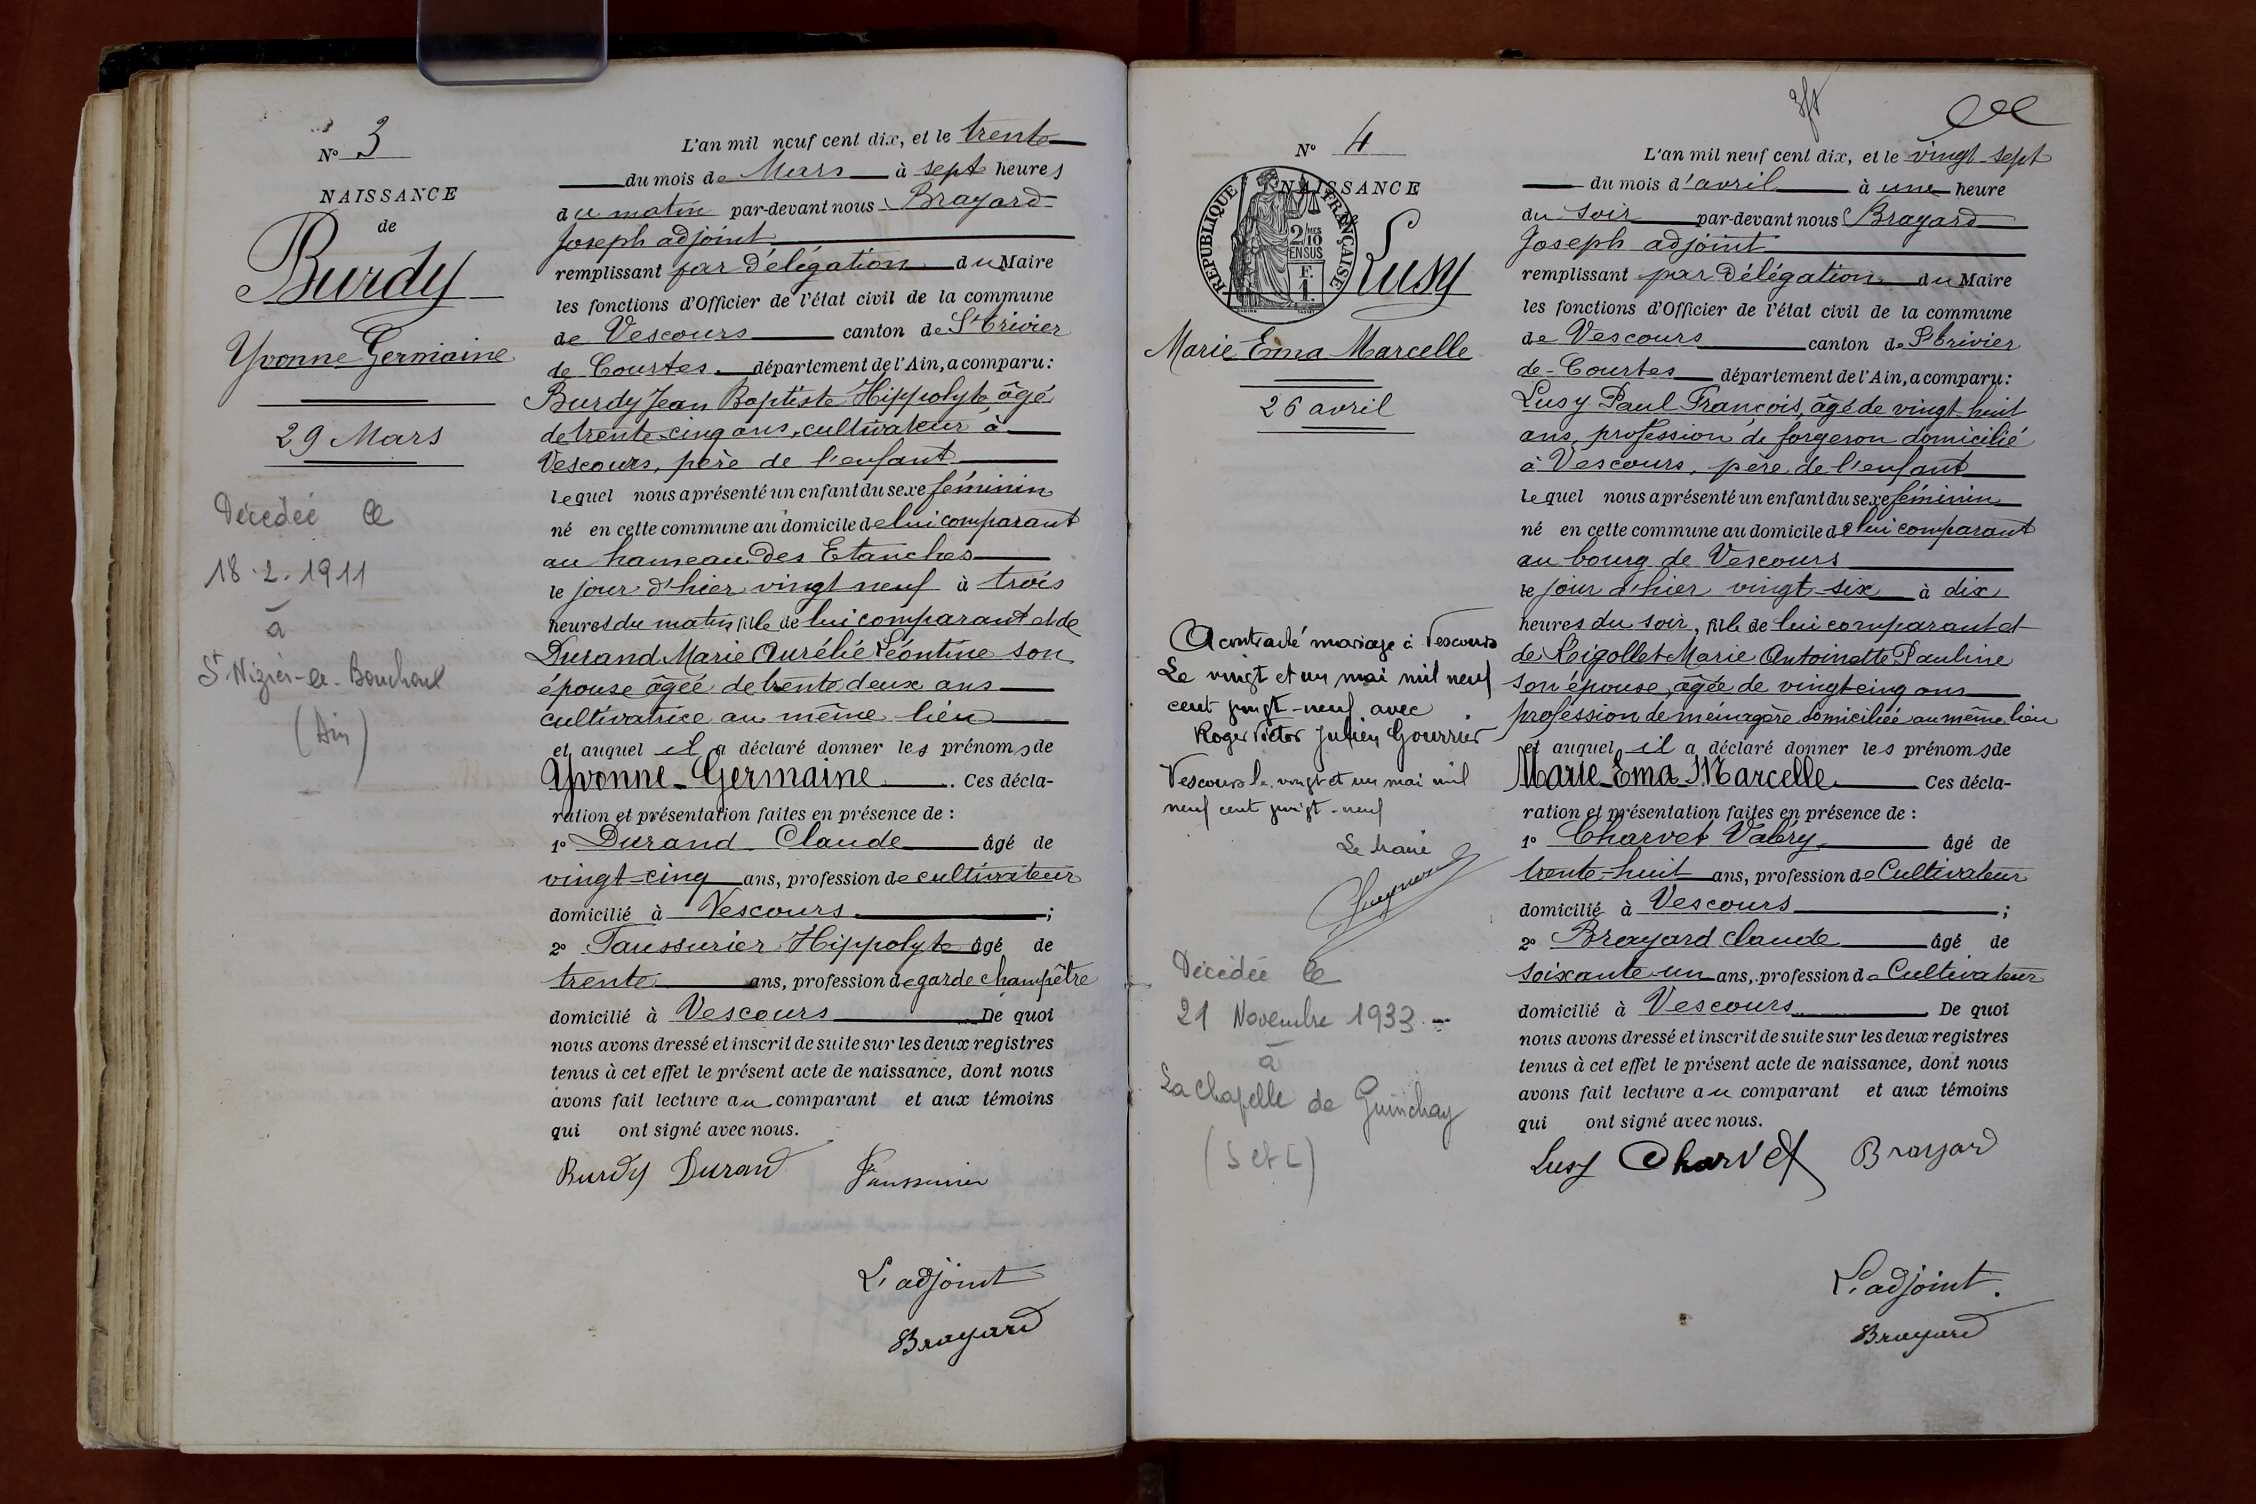 N° 3
NAISSANCE
de
Burdy
Yvonne Germaine
29 Mars
Décédée le
18.2.1911
à
St Nizier-le-Bouchoux
(Ain)
L'an mil neuf cent dix, et le trente
du mois de Mars à sept heures
du matin par-devant nous Brayard
Joseph adjoint
remplissant par Délégation du Maire
les fonctions d'Officier de l'état civil de la commune
de Vescours canton de St Trivier
de Courtes département de l'Ain, a comparu:
Burdy Jean Baptiste Hippolyte âgé
de trente-cinq ans, cultivateur à
Vescours, père de l'enfant
lequel nous a présenté un enfant du sexe féminin
né en cette commune au domicile de lui comparant
au hameau des Etanches
le jour d'hier vingt neuf à trois
heures du matin fille de lui comparant et de
Durand Marie Aurélie Léontine son
épouse âgée de trente deux ans
cultivatrice au même lieu
et auquel il a déclaré donner les prénoms de
Yvonne-Germaine. Ces décla-
ration et présentation faites en présence de :
1° Durand Claude âgé de
vingt-cinq ans, profession de cultivateur
domicilié à Vescours ;
2° Faussurier Hippolyte âgé de
trente ans, profession de garde champêtre
domicilié à Vescours De quoi
nous avons dressé et inscrit de suite sur les deux registres
tenus à cet effet le présent acte de naissance, dont nous
avons fait lecture au comparant et aux témoins
qui ont signé avec nous.
Burdy Durand Faussurier
L'adjoint
Brayard
N° 4
NAISSANCE
RÉPUBLIQUE FRANÇAISE
2/10 MES
EN SUS
F.
1.
de
Lusy
Marie Ema Marcelle
26 avril
A contracté mariage à Vescours
Le vingt et un mai mil neuf
cent vingt-neuf avec
Roger Victor Julien Gourrier
Vescours le vingt et un mai mil
neuf cent vingt-neuf
Le maire
Décédée le
21 Novembre 1933
à
La Chapelle de Guinchay
(S et L)
L'an mil neuf cent dix, et le vingt-sept
du mois d'avril à une heure
du soir par-devant nous Brayard
Joseph adjoint
remplissant par Délégation du Maire
les fonctions d'Officier de l'état civil de la commune
de Vescours canton de St Trivier
de-Courtes département de l'Ain, a comparu:
Lusy Paul François, âgé de vingt huit
ans, profession de forgeron domicilié
à Vescours, père de l'enfant
lequel nous a présenté un enfant du sexe féminin
né en cette commune au domicile de lui comparant
au bourg de Vescours
le jour d'hier vingt-six à dix
heures du soir, fille de lui comparant et
de Rigollet Marie Antoinette Pauline
son épouse, âgée de vingt-cinq ans
profession de ménagère domiciliée au même lieu
et auquel il a déclaré donner les prénoms de
Marie Ema Marcelle Ces décla-
ration et présentation faites en présence de :
1° Charvet Valéry âgé de
trente-huit ans, profession de Cultivateur
domicilié à Vescours ;
2° Brayard Claude âgé de
soixante-un ans, profession de Cultivateur
domicilié à Vescours De quoi
nous avons dressé et inscrit de suite sur les deux registres
tenus à cet effet le présent acte de naissance, dont nous
avons fait lecture au comparant et aux témoins
qui ont signé avec nous.
Lusy Charvet Brayard
L'adjoint.
Brayard